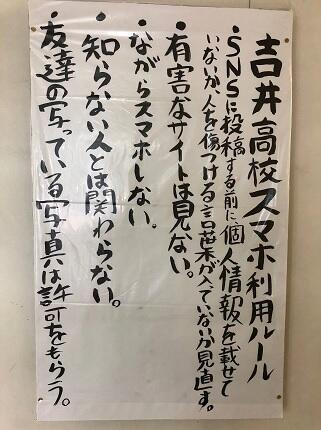 吉井高校スマホ利用ルール
・SNSに投稿する前に、個人情報を載せて
いないか、人を傷つける言葉が入っていないか見直す。
・有害なサイトは見ない。
・ながらスマホしない。
・知らない人とは関わらない。
・友達の写っている写真は許可をもらう。